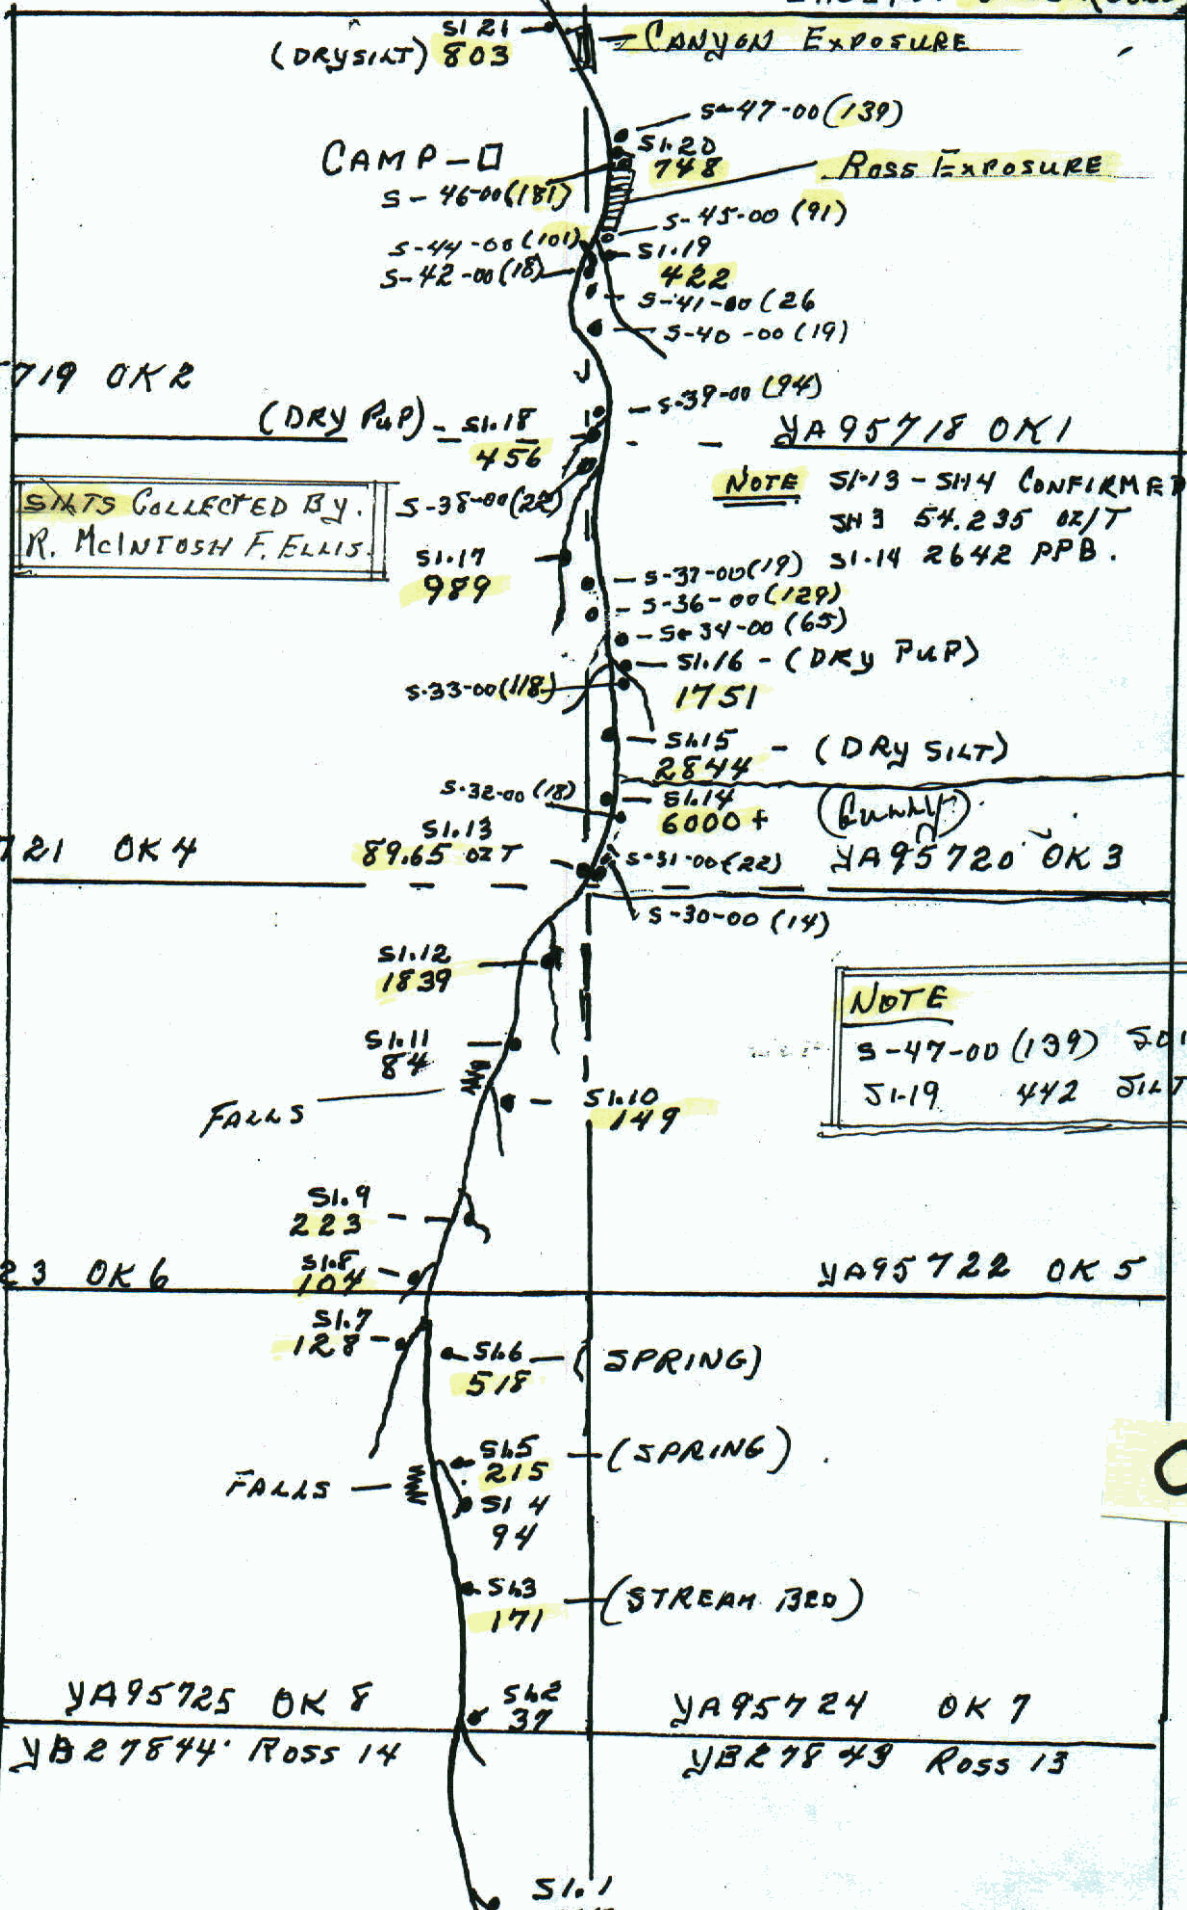 S1.21
(DRY SILT) 803
CANYON EXPOSURE
S-47-00 (139)
S1.20
748
CAMP-
ROSS EXPOSURE
S-46-00 (181)
S-45-00 (91)
S-44-00 (101)
S1.19
422
S-42-00 (18)
S-41-00 (26
S-40-00 (19)
719 OK 2
S-39-00 (94)
(DRY PUP) - S1.18
456
YA95718 OK 1
NOTE S1.13 - S1.14 CONFIRMED
54.235 OZ/T
S1.14 2642 PPB.
SILTS COLLECTED BY.
R. MCINTOSH F. ELLIS.
S-38-00 (22)
S1.17
989
S-37-00 (19)
S-36-00 (129)
S-34-00 (65)
S1.16 - (DRY PUP)
1751
S-33-00 (118)
S1.15 - (DRY SILT)
2844
S-32-00 (18)
S1.14
6000 +
S1.13
89.65 OZ T
721 OK 4
S-31-00 (22)
YA95720 OK 3
S-30-00 (14)
S1.12
1839
NOTE
S-47-00 (139)
S1.19 442 SILT
S1.11
84
FALLS
S1.10
149
S1.9
223
S1.8
104
23 OK 6
YA95722 OK 5
S1.7
128
S1.6 - (SPRING)
518
S1.5 - (SPRING)
215
FALLS
S1.4
94
S1.3
171 - (STREAM BED)
YA95725 OK 8
S1.2
37
YA95724 OK 7
YB27844 ROSS 14
YB27843 ROSS 13
S1.1